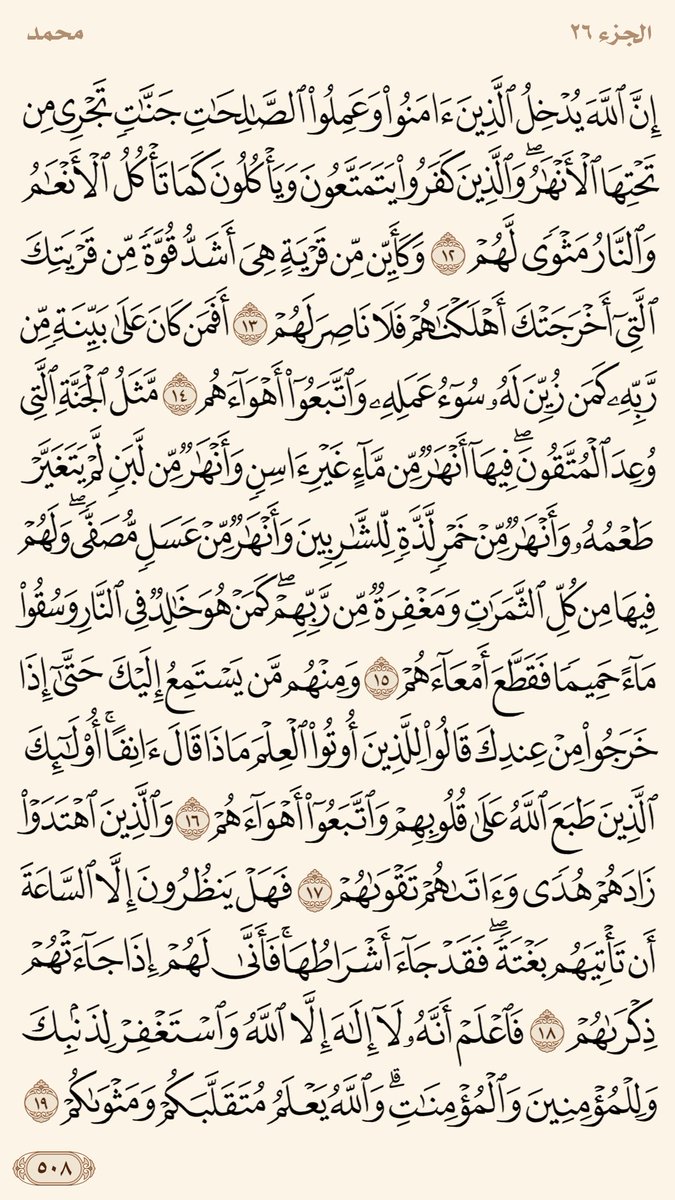 الجزء ٢٦
محمد
إِنَّ ٱللَّهَ يُدۡخِلُ ٱلَّذِينَ ءَامَنُواْ وَعَمِلُواْ ٱلصَّـٰلِحَـٰتِ جَنَّـٰتٖ تَجۡرِي مِن
تَحۡتِهَا ٱلۡأَنۡهَـٰرُۖ وَٱلَّذِينَ كَفَرُواْ يَتَمَتَّعُونَ وَيَأۡكُلُونَ كَمَا تَأۡكُلُ ٱلۡأَنۡعَـٰمُ
وَٱلنَّارُ مَثۡوٗى لَّهُمۡ ١٢ وَكَأَيِّن مِّن قَرۡيَةٍ هِيَ أَشَدُّ قُوَّةٗ مِّن قَرۡيَتِكَ
ٱلَّتِيٓ أَخۡرَجَتۡكَ أَهۡلَكۡنَـٰهُمۡ فَلَا نَاصِرَ لَهُمۡ ١٣ أَفَمَن كَانَ عَلَىٰ بَيِّنَةٖ مِّن
رَّبِّهِۦ كَمَن زُيِّنَ لَهُۥ سُوٓءُ عَمَلِهِۦ وَٱتَّبَعُوٓاْ أَهۡوَآءَهُم ١٤ مَّثَلُ ٱلۡجَنَّةِ ٱلَّتِي
وُعِدَ ٱلۡمُتَّقُونَۖ فِيهَآ أَنۡهَـٰرٞ مِّن مَّآءٍ غَيۡرِ ءَاسِنٖ وَأَنۡهَـٰرٞ مِّن لَّبَنٖ لَّمۡ يَتَغَيَّرۡ
طَعۡمُهُۥ وَأَنۡهَـٰرٞ مِّنۡ خَمۡرٖ لَّذَّةٖ لِّلشَّـٰرِبِينَ وَأَنۡهَـٰرٞ مِّنۡ عَسَلٖ مُّصَفّٗىۖ وَلَهُمۡ
فِيهَا مِن كُلِّ ٱلثَّمَرَٰتِ وَمَغۡفِرَةٞ مِّن رَّبِّهِمۡۖ كَمَنۡ هُوَ خَـٰلِدٞ فِي ٱلنَّارِ وَسُقُواْ
مَآءً حَمِيمٗا فَقَطَّعَ أَمۡعَآءَهُمۡ ١٥ وَمِنۡهُم مَّن يَسۡتَمِعُ إِلَيۡكَ حَتَّىٰٓ إِذَا
خَرَجُواْ مِنۡ عِندِكَ قَالُواْ لِلَّذِينَ أُوتُواْ ٱلۡعِلۡمَ مَاذَا قَالَ ءَانِفًاۚ أُوْلَـٰٓئِكَ
ٱلَّذِينَ طَبَعَ ٱللَّهُ عَلَىٰ قُلُوبِهِمۡ وَٱتَّبَعُوٓاْ أَهۡوَآءَهُمۡ ١٦ وَٱلَّذِينَ ٱهۡتَدَوۡاْ
زَادَهُمۡ هُدٗى وَءَاتَىٰهُمۡ تَقۡوَىٰهُمۡ ١٧ فَهَلۡ يَنظُرُونَ إِلَّا ٱلسَّاعَةَ
أَن تَأۡتِيَهُم بَغۡتَةٗۖ فَقَدۡ جَآءَ أَشۡرَاطُهَاۚ فَأَنَّىٰ لَهُمۡ إِذَا جَآءَتۡهُمۡ
ذِكۡرَىٰهُمۡ ١٨ فَٱعۡلَمۡ أَنَّهُۥ لَآ إِلَـٰهَ إِلَّا ٱللَّهُ وَٱسۡتَغۡفِرۡ لِذَنۢبِكَ
وَلِلۡمُؤۡمِنِينَ وَٱلۡمُؤۡمِنَـٰتِۗ وَٱللَّهُ يَعۡلَمُ مُتَقَلَّبَكُمۡ وَمَثۡوَىٰكُمۡ ١٩
٥٠٨